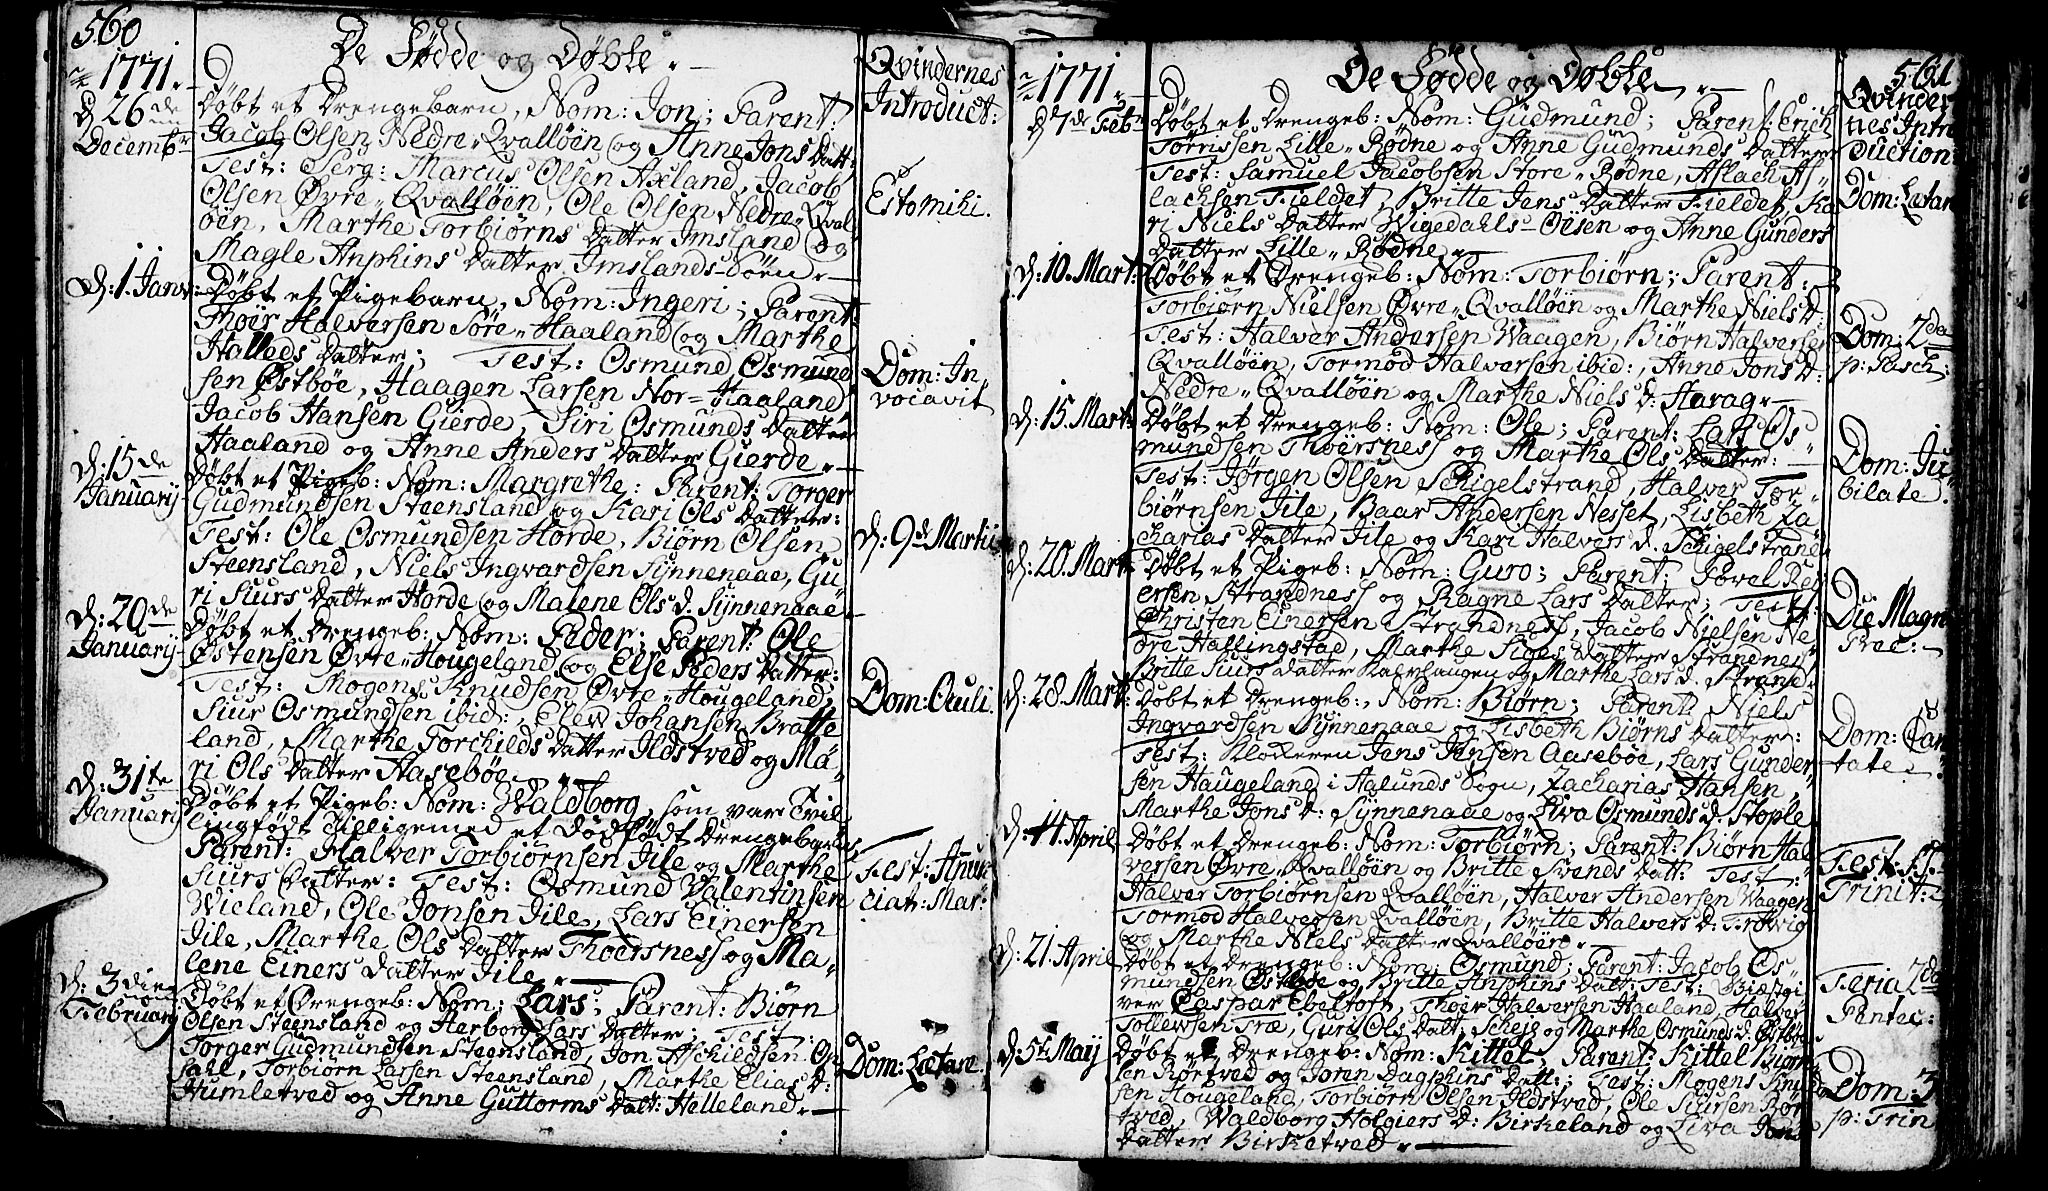 560
1771.
De Fødde og Døbte.
Qvindernes
Introduct:
d 26de
Decembr
Døbt et Drengebarn, Nom: Jon; Parent:
Jacob Olsen Nedre-Qvalløen og Anne Jons Datt:
Test: Serg: Marcus Olsen Axland, Jacob
Olsen Øvre-Qvalløen, Ole Olsen Nedre-Qval
øen, Marthe Torbiørns Datter Imsland og
Magle Anphins Datter Imslands-Søen.
Estomihi.
d. 1. Janr:
Døbt et Pigebarn, Nom: Ingeri; Parent:
Thoer Halversen Søre-Haaland og Marthe
Halleds Datter; Test: Osmund Osmund
sen Østbøe, Haagen Larsen Nor=Haaland
Jacob Hansen Gierde, Siri Osmunds Datter
Haaland og Anne Anders Datter Gierde.
Dom: In
vocavit
d: 15de
Januarij
Døbt et Pigeb: Nom: Margrethe: Parent: Torger
Gudmundsen Steensland og Kari Ols Datter:
Test: Ole Osmundsen Horde, Biørn Olsen
Steensland, Niels Ingvardsen Synnenaae, Gu
ri Siurs Datter Horde og Malene Ols d. Synnenaae.
d: 9de Martii
d: 20de
Januarij
Døbt et Drengeb: Nom: Peder; Parent: Ole
Østensen Øvre-Hougeland og Else Peders Datter:
Test: Mogens Knudsen Øvre-Hougeland,
Siur Osmundsen ibid:, Elev Johansen Bratte
land, Marthe Torchilds Datter Ildstved og Ma
ri Ols Datter Aasebøe.
Dom: Oculi.
d: 31te
Januarij
Døbt et Pigeb: Nom: Waldborg, som var Tvil
lingfødt tilligemed et dødfødt Drengebarn,
Parent: Halver Torbiørnsen Jile og Marthe
Siurs Datter: Test: Osmund Valentinsen
Wieland, Ole Jonsen Jile, Lars Einersen
Jile, Marthe Ols Datter Thoersness og Ma
lene Einers Datter Jile.
Fest: Anun
ciat: Mar:
d: 3die
Februarij
Døbt et Drengeb: Nom: Lars; Parent: Biørn
Olsen Steensland og Herborg Lars Datter; Test:
Torger Gudmundsen Steensland, Jon Aschildsen On
sahl, Torbiørn Larsen Steensland, Marthe Elias D:
Humletved og Anne Guttorms Datt: Helleland.
Dom: Lætare
1771.
De Fødde og Døbte.
561
Qvinder
nes Intro
duction
d 7de Febr
Døbt et Drengeb: Nom: Gudmund; Parent: Erich
Tørrissen Lille-Rødne og Anne Gudmunds Datter
Test: Samuel Jacobsen Store-Rødne, Aslach As
lachsen Fieldet, Britte Jens Datter Fieldet, Ka
ri Niels Datter Wigedahls-Øisen og Anne Gunders
Datter Lille-Rødne.
Dom: Lætare
d: 10. Mart:
Døbt et Drengeb: Nom: Torbiørn; Parent:
Torbiørn Nielsen Øvre-Qvalløen og Marthe Niels D:
Test: Halver Andersen Waagen, Biørn Halversen
Qvalløen, Tormod Halversen ibid:, Anne Jons D:
Nedre-Qvalløen og Marthe Niels d: Harag.
Dom: 2da
p: Pasch:
d: 15. Mart:
Døbt et Drengeb: Nom: Ole; Parent: Lars Os
mundsen Thoersness og Marthe Ols Datter:
Test: Jørgen Olsen Schigelstrand, Halver Tor
biørnsen Jile, Baar Andersen Nesset, Lisbeth Za
charias Datter Jile og Kari Halvers d. Schigelstrand.
Dom: Ju
bilate.
d: 20. Mart:
Døbt et Pigeb: Nom: Guro; Parent: Povel Rei
ersen Strandness og Ragne Lars Datter; Test:
Christen Einersen Strandness, Jacob Nielsen Ne
dre Hallingstad, Marthe Siges Datter Strandness,
Britte Siurs Datter Kalvhaugen og Marthe Lars d. Strand.
Die Magn:
Prec:
d: 28. Mart:
Døbt et Drengeb:, Nom: Biørn; Parent: Niels
Ingvardsen Synnenaae og Lisbeth Biørns Datter:
Test: Klocheren Jens Jensen Aasebøe, Lars Gunder
sen Haugeland i Aalunds Sogn, Zacharias Hansen,
Marthe Jons D: Synnenaae og Liva Osmunds d. Stople
Dom: Can
tate.
d: 14. April
Døbt et Drengeb: Nom: Torbiørn; Parent: Biørn Hal
versen Øvre-Qvalløen og Britte Svends Datt: Test:
Halver Torbiørnsen Qvalløen, Halver Andersen Waagen
Tormod Halversen Qvalløen, Britte Halvers D: Trovig
og Marthe Niels Datter Qvalløen.
Fest: S:
Trinit:
d: 21. April
Døbt et Drengeb: Nom: Osmund; Parent: Jacob Os
mundsen Østbøe og Britte Anphins Datt: Test: Giæstgi
ver Caspar Ebeltoft, Thoer Halversen Haaland, Halver
Tollewsen Træ, Guri Ols Datt: Scheie og Marthe Osmunds d. Østbøe
Feria 2da
Pentec:
d: 5te Maij
Døbt et Drengeb: Nom: Kittel, Parent: Kittel Biørn
sen Rørtved og Joren Dagphins Datt:; Test: Mogens Knud
sen Hougeland, Torbiørn Olsen Ildstved, Ole Siursen Bør
tved, Waldborg Holgiers D: Birkeland og Liva Jons
Datter Birketved.
Dom: 3
p: Trin